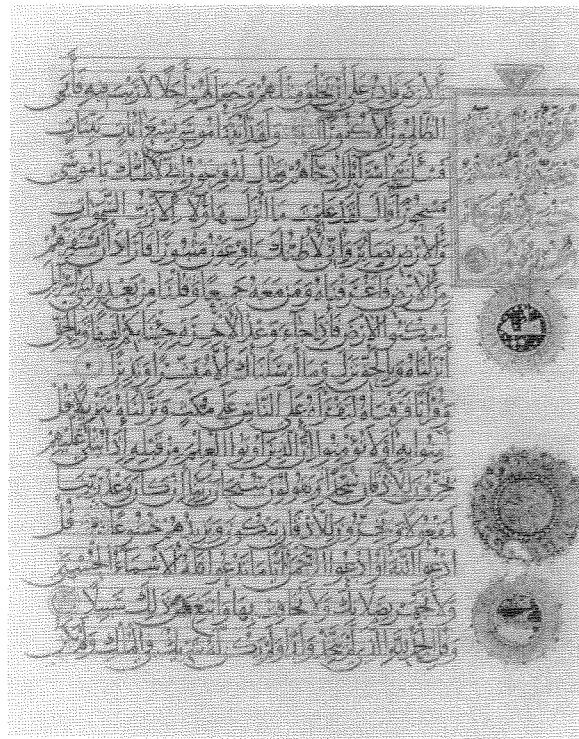 وَالْأَرْضَ قَادِرٌ عَلَى أَنْ يَخْلُقَ مِثْلَهُمْ وَجَعَلَ لَهُمْ أَجَلًا لَا رَيْبَ فِيهِ فَأَبَى
الظَّالِمُونَ إِلَّا كُفُورًا وَلَقَدْ آتَيْنَا مُوسَى تِسْعَ آيَاتٍ بَيِّنَاتٍ
فَسْئَلْ بَنِي إِسْرَائِيلَ إِذْ جَاءَهُمْ فَقَالَ لَهُ فِرْعَوْنُ إِنِّي لَأَظُنُّكَ يَا مُوسَى
مَسْحُورًا قَالَ لَقَدْ عَلِمْتَ مَا أَنْزَلَ هَؤُلَاءِ إِلَّا رَبُّ السَّمَوَاتِ
وَالْأَرْضِ بَصَائِرَ وَإِنِّي لَأَظُنُّكَ يَا فِرْعَوْنُ مَثْبُورًا فَأَرَادَ أَنْ يَسْتَفِزَّهُمْ
مِنَ الْأَرْضِ فَأَغْرَقْنَاهُ وَمَنْ مَعَهُ جَمِيعًا وَقُلْنَا مِنْ بَعْدِهِ لِبَنِي إِسْرَائِيلَ
اسْكُنُوا الْأَرْضَ فَإِذَا جَاءَ وَعْدُ الْآخِرَةِ جِئْنَا بِكُمْ لَفِيفًا وَبِالْحَقِّ
أَنْزَلْنَاهُ وَبِالْحَقِّ نَزَلَ وَمَا أَرْسَلْنَاكَ إِلَّا مُبَشِّرًا وَنَذِيرًا
وَقُرْآنًا فَرَقْنَاهُ لِتَقْرَأَهُ عَلَى النَّاسِ عَلَى مُكْثٍ وَنَزَّلْنَاهُ تَنْزِيلًا قُلْ
آمِنُوا بِهِ أَوْ لَا تُؤْمِنُوا إِنَّ الَّذِينَ أُوتُوا الْعِلْمَ مِنْ قَبْلِهِ إِذَا يُتْلَى عَلَيْهِمْ
يَخِرُّونَ لِلْأَذْقَانِ سُجَّدًا وَيَقُولُونَ سُبْحَانَ رَبِّنَا إِنْ كَانَ وَعْدُ رَبِّنَا
لَمَفْعُولًا وَيَخِرُّونَ لِلْأَذْقَانِ يَبْكُونَ وَيَزِيدُهُمْ خُشُوعًا قُلِ
ادْعُوا اللَّهَ أَوِ ادْعُوا الرَّحْمَنَ أَيًّا مَا تَدْعُوا فَلَهُ الْأَسْمَاءُ الْحُسْنَى
وَلَا تَجْهَرْ بِصَلَاتِكَ وَلَا تُخَافِتْ بِهَا وَابْتَغِ بَيْنَ ذَلِكَ سَبِيلًا
وَقُلِ الْحَمْدُ لِلَّهِ الَّذِي لَمْ يَتَّخِذْ وَلَدًا وَلَمْ يَكُنْ لَهُ شَرِيكٌ فِي الْمُلْكِ وَلَمْ يَكُنْ